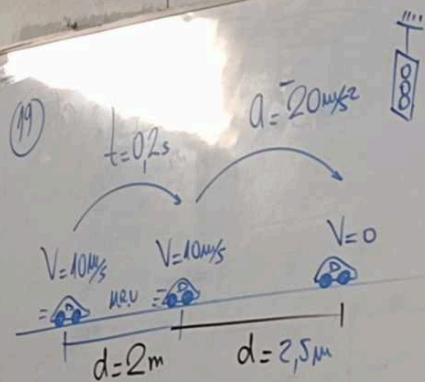 19
t=0,2s
a=-20m/s²
V=10m/s
V=10m/s
V=0
MRU
d=2m
d=2,5m